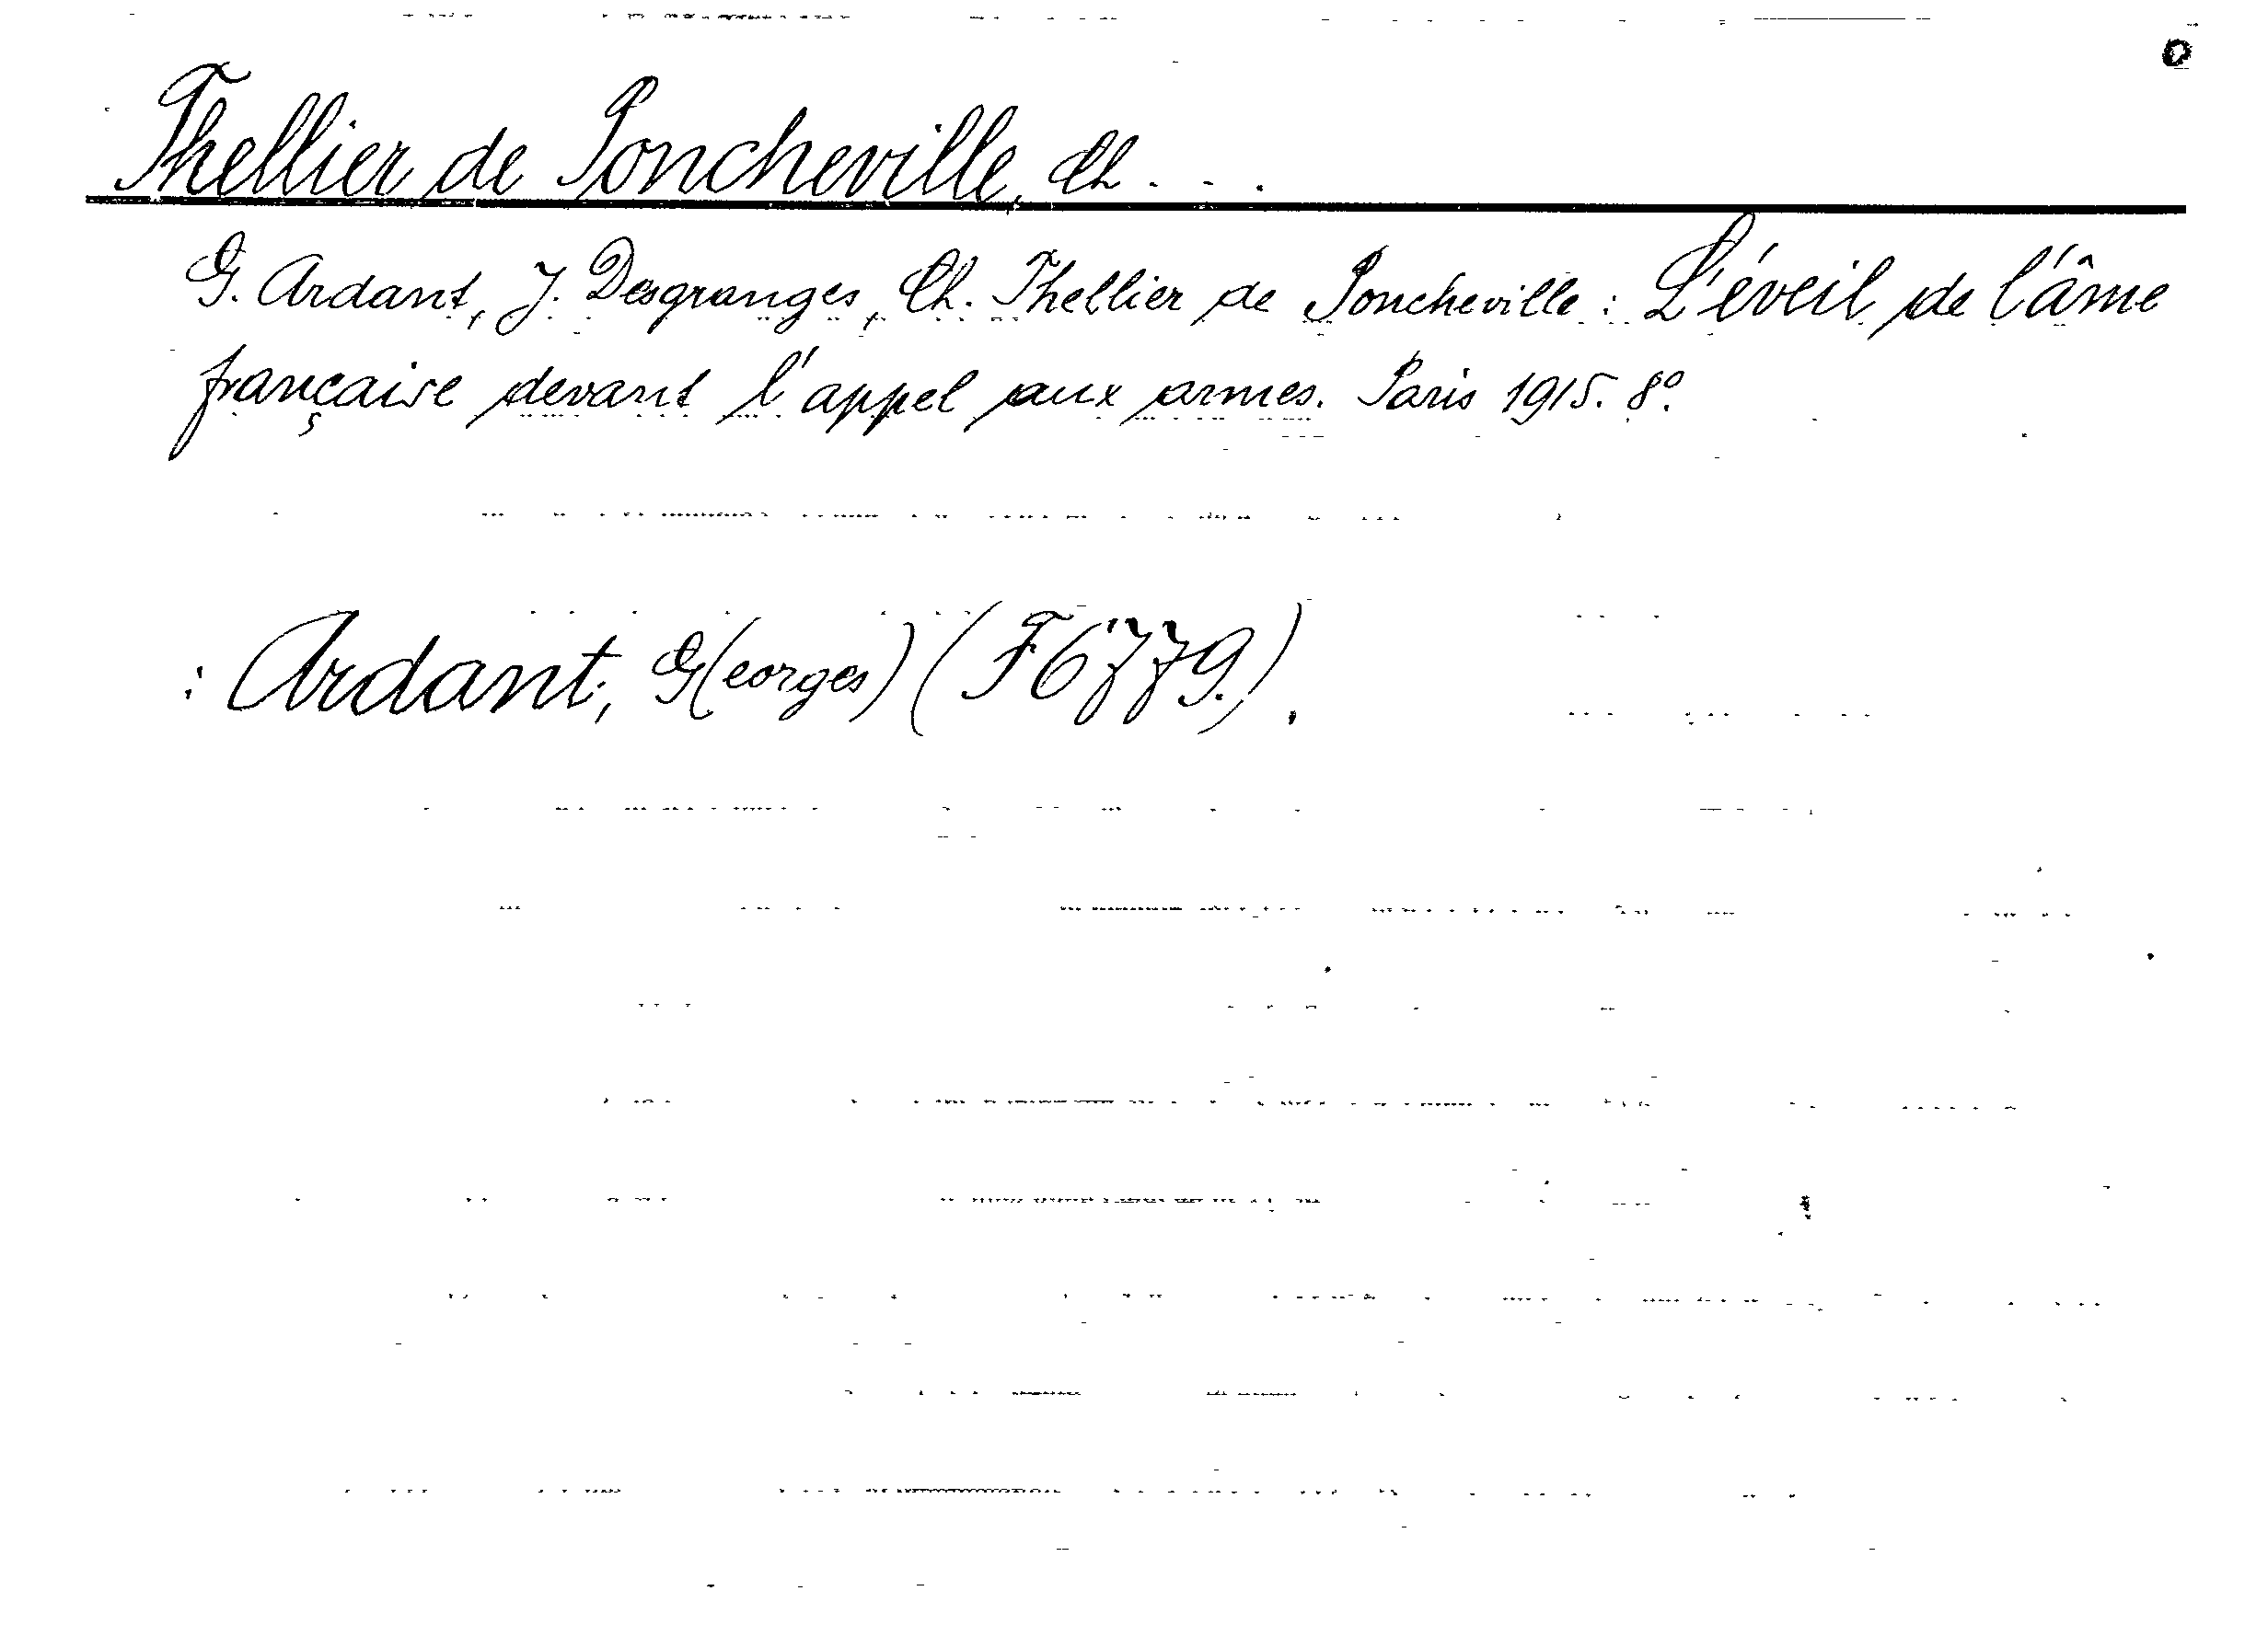 Thellier de Poncheville, Ch...
G. Ardant, J. Desgranges, Ch. Thellier de Poncheville: L'éveil de l'âme
française devant l'appel aux armes. Paris 1915. 8º.
: Ardant, G(eorges) (F6779.).